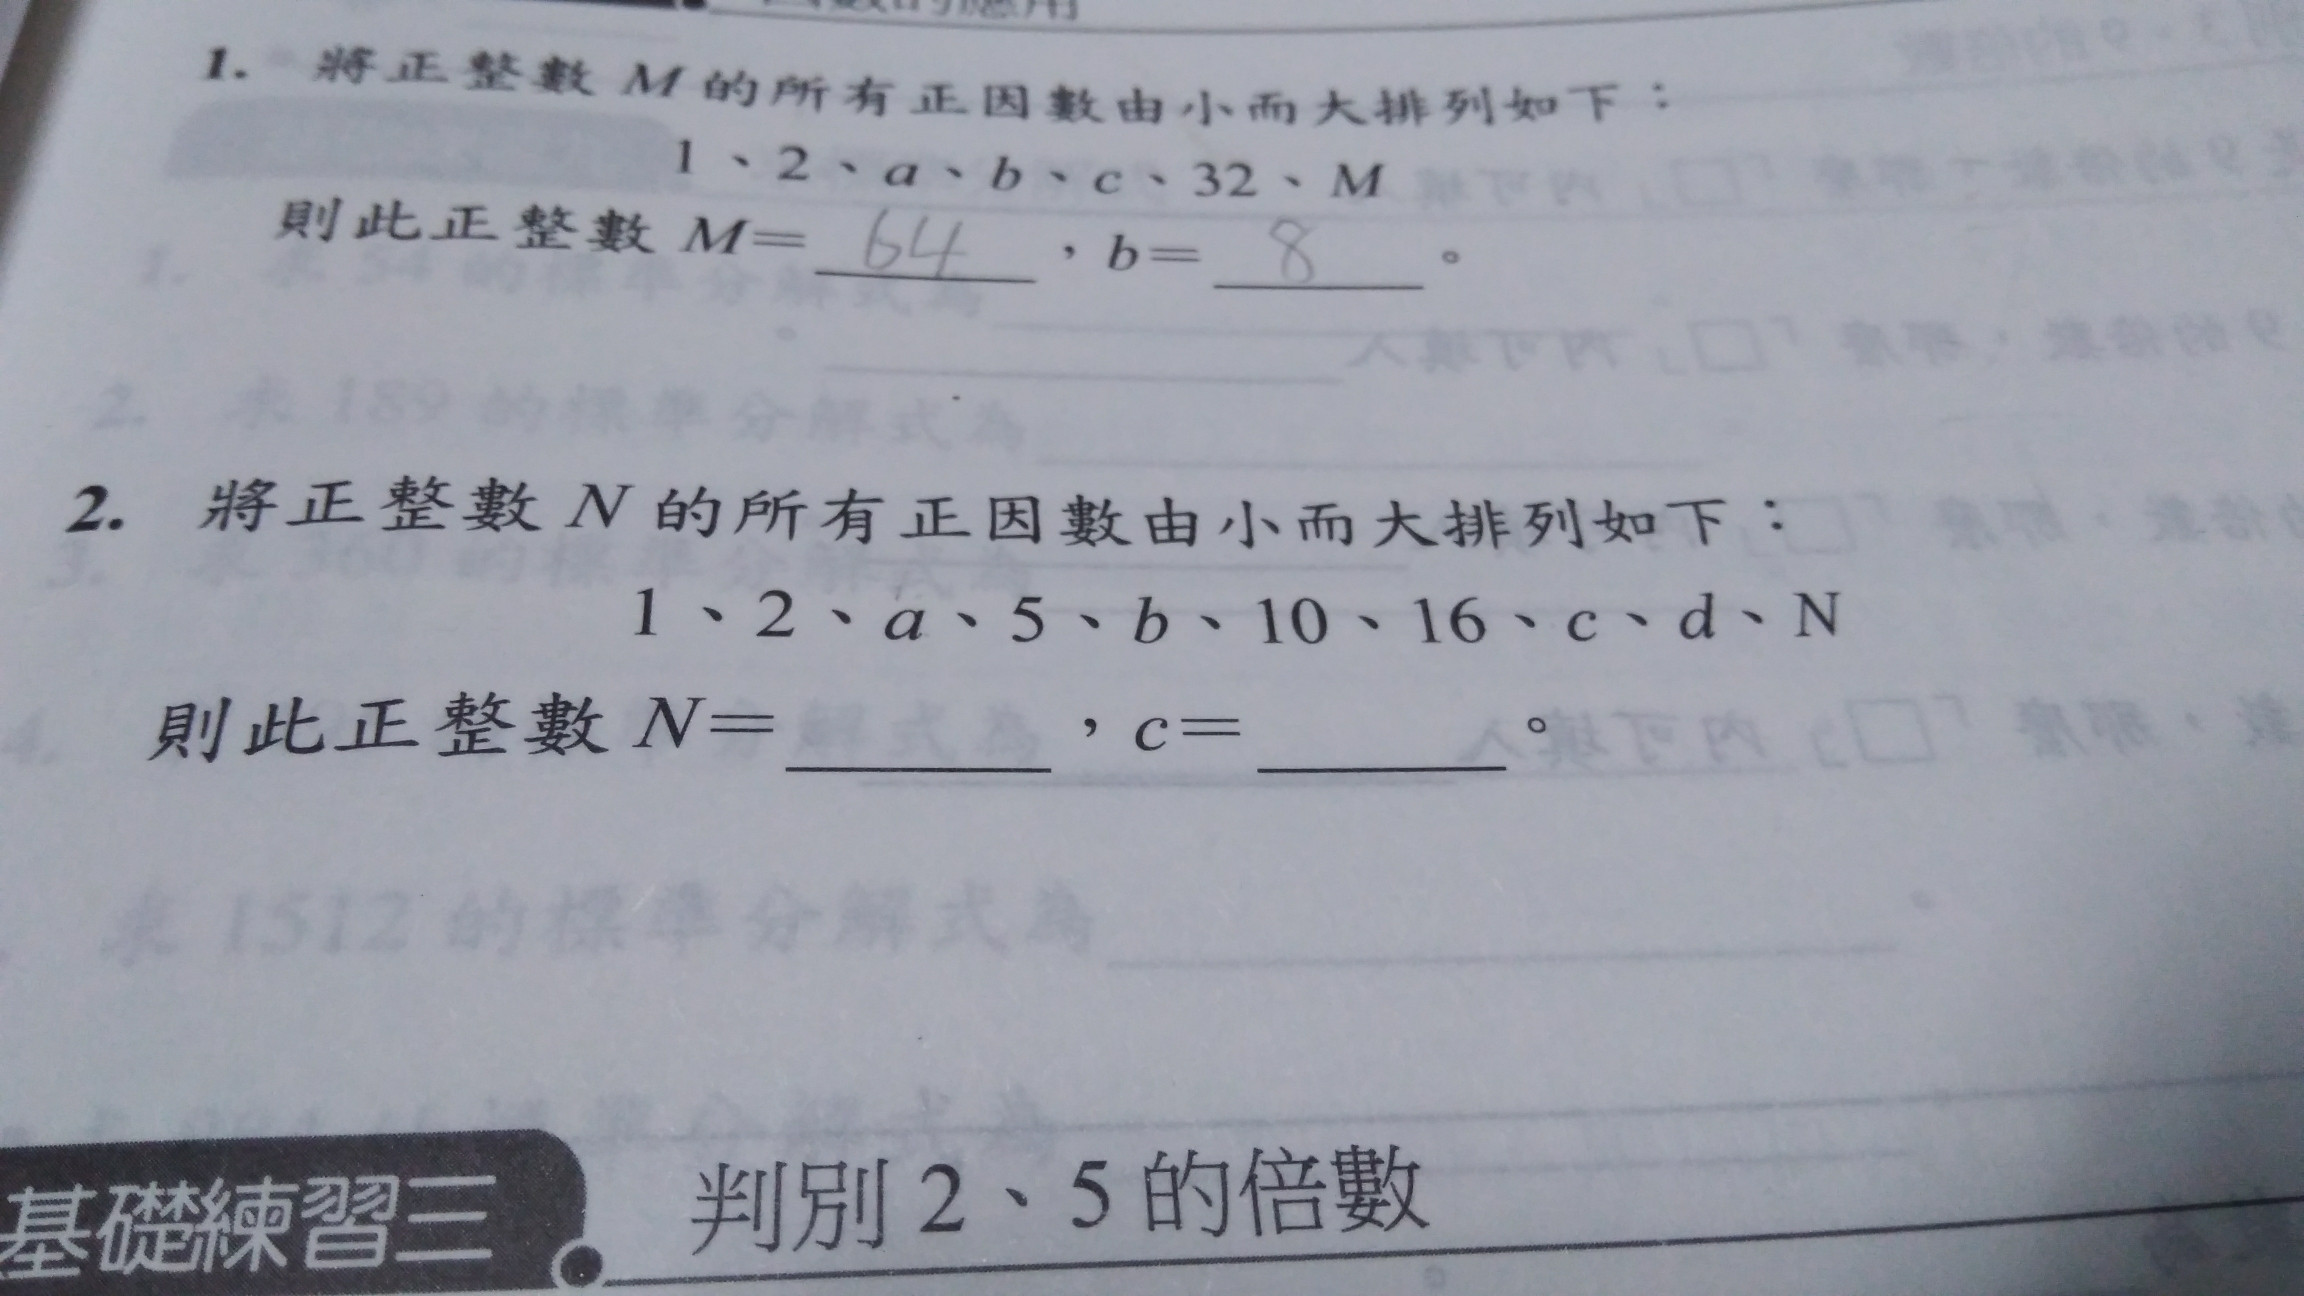 1. 將正整數 M 的所有正因數由小而大排列如下：
1、2、a、b、c、32、M
則此正整數 M= 64 ，b= 8 。
2. 將正整數 N 的所有正因數由小而大排列如下：
1、2、a、5、b、10、16、c、d、N
則此正整數 N=______，c=______。
求 1512 的標準分解式為
基礎練習三 判別 2、5 的倍數